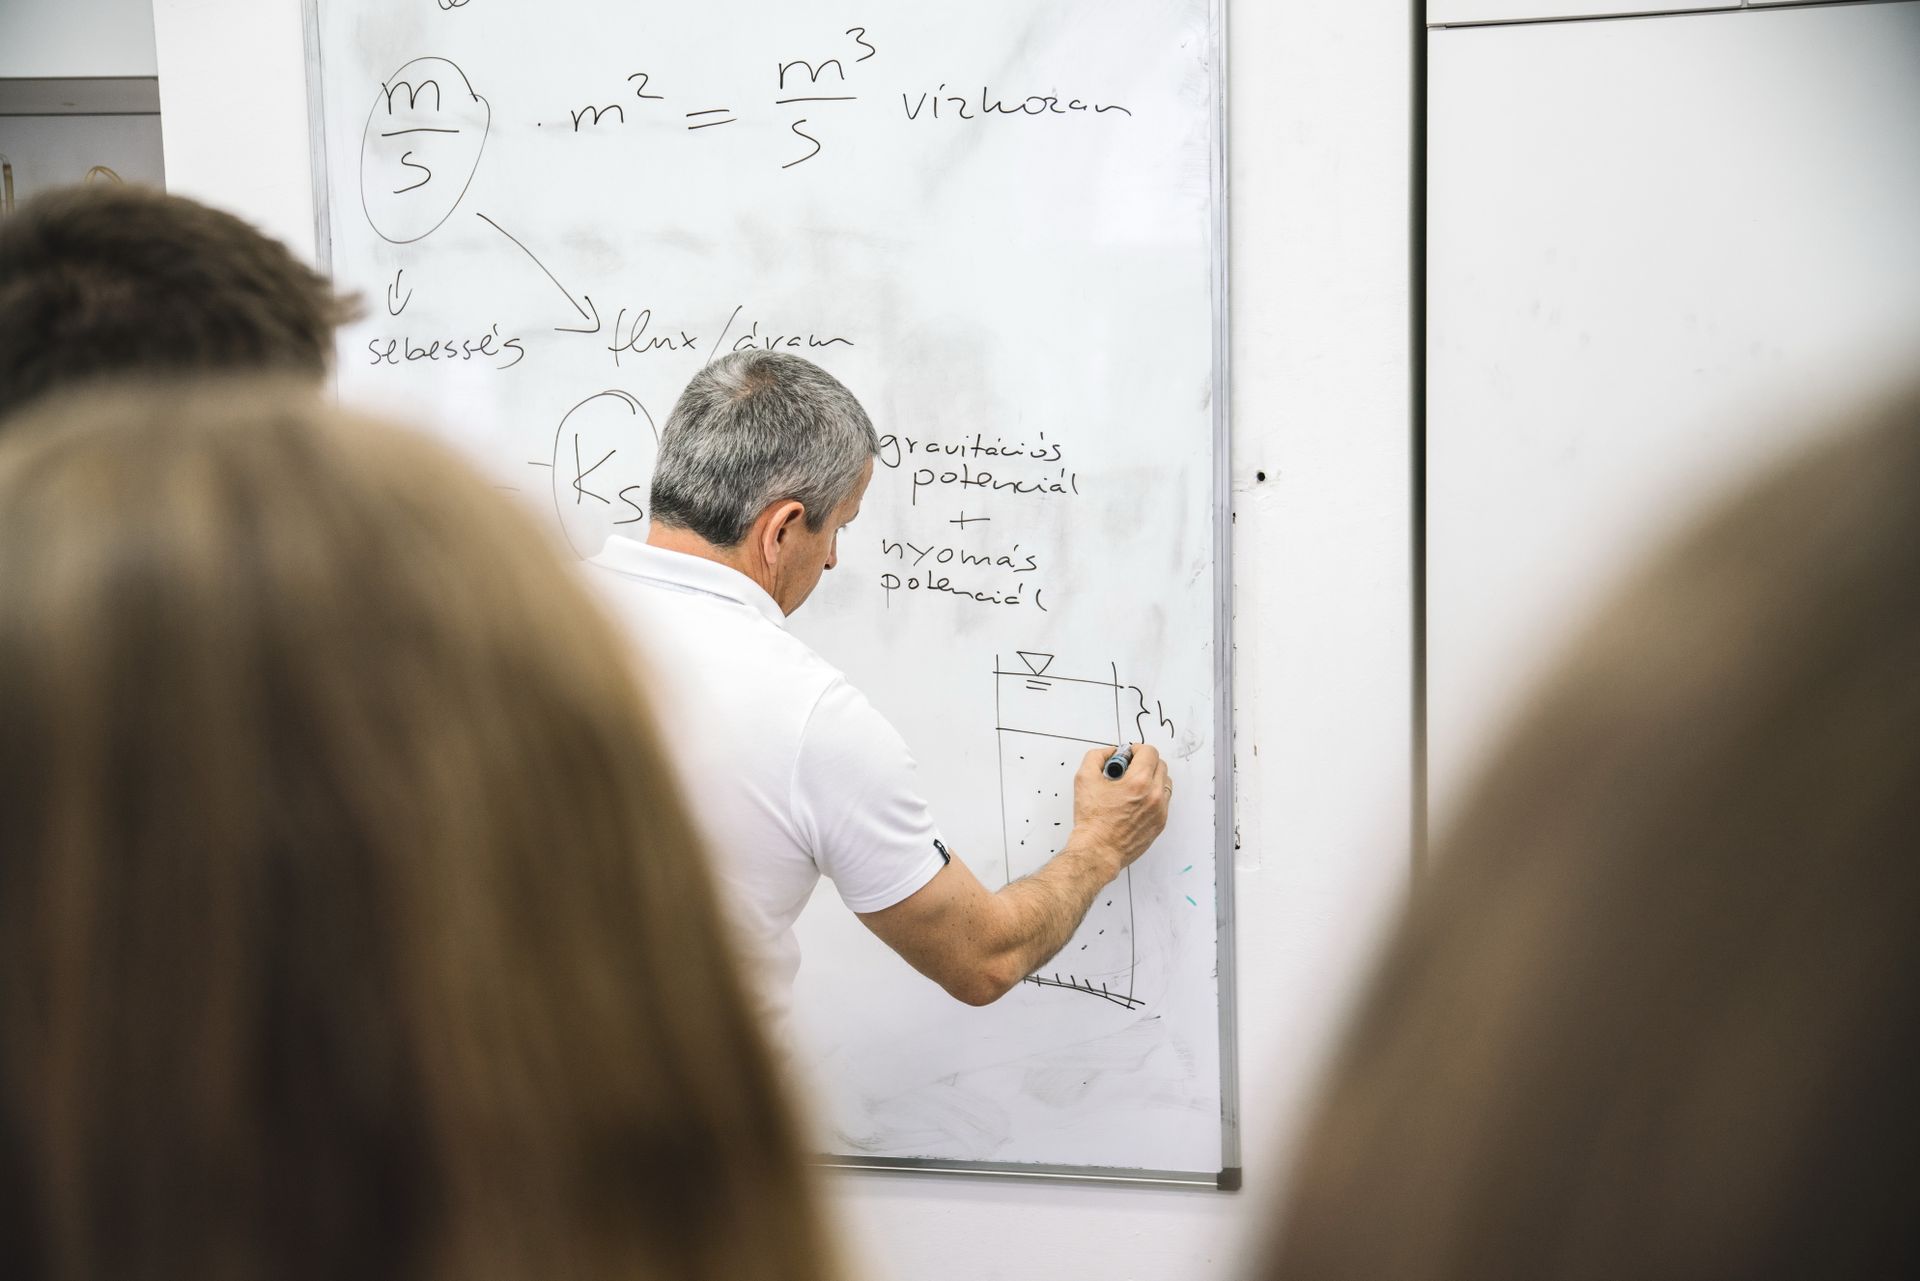 m/s · m² = m³/s vízhozam
sebesség flux/áram
= Ks
gravitációs
potenciál
+
nyomás
potenciál
h